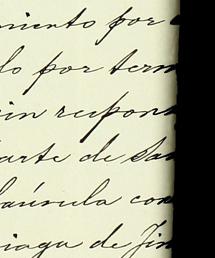 miento por
lo por term
sin respons
parte de San
láusula con
niaga de Jin